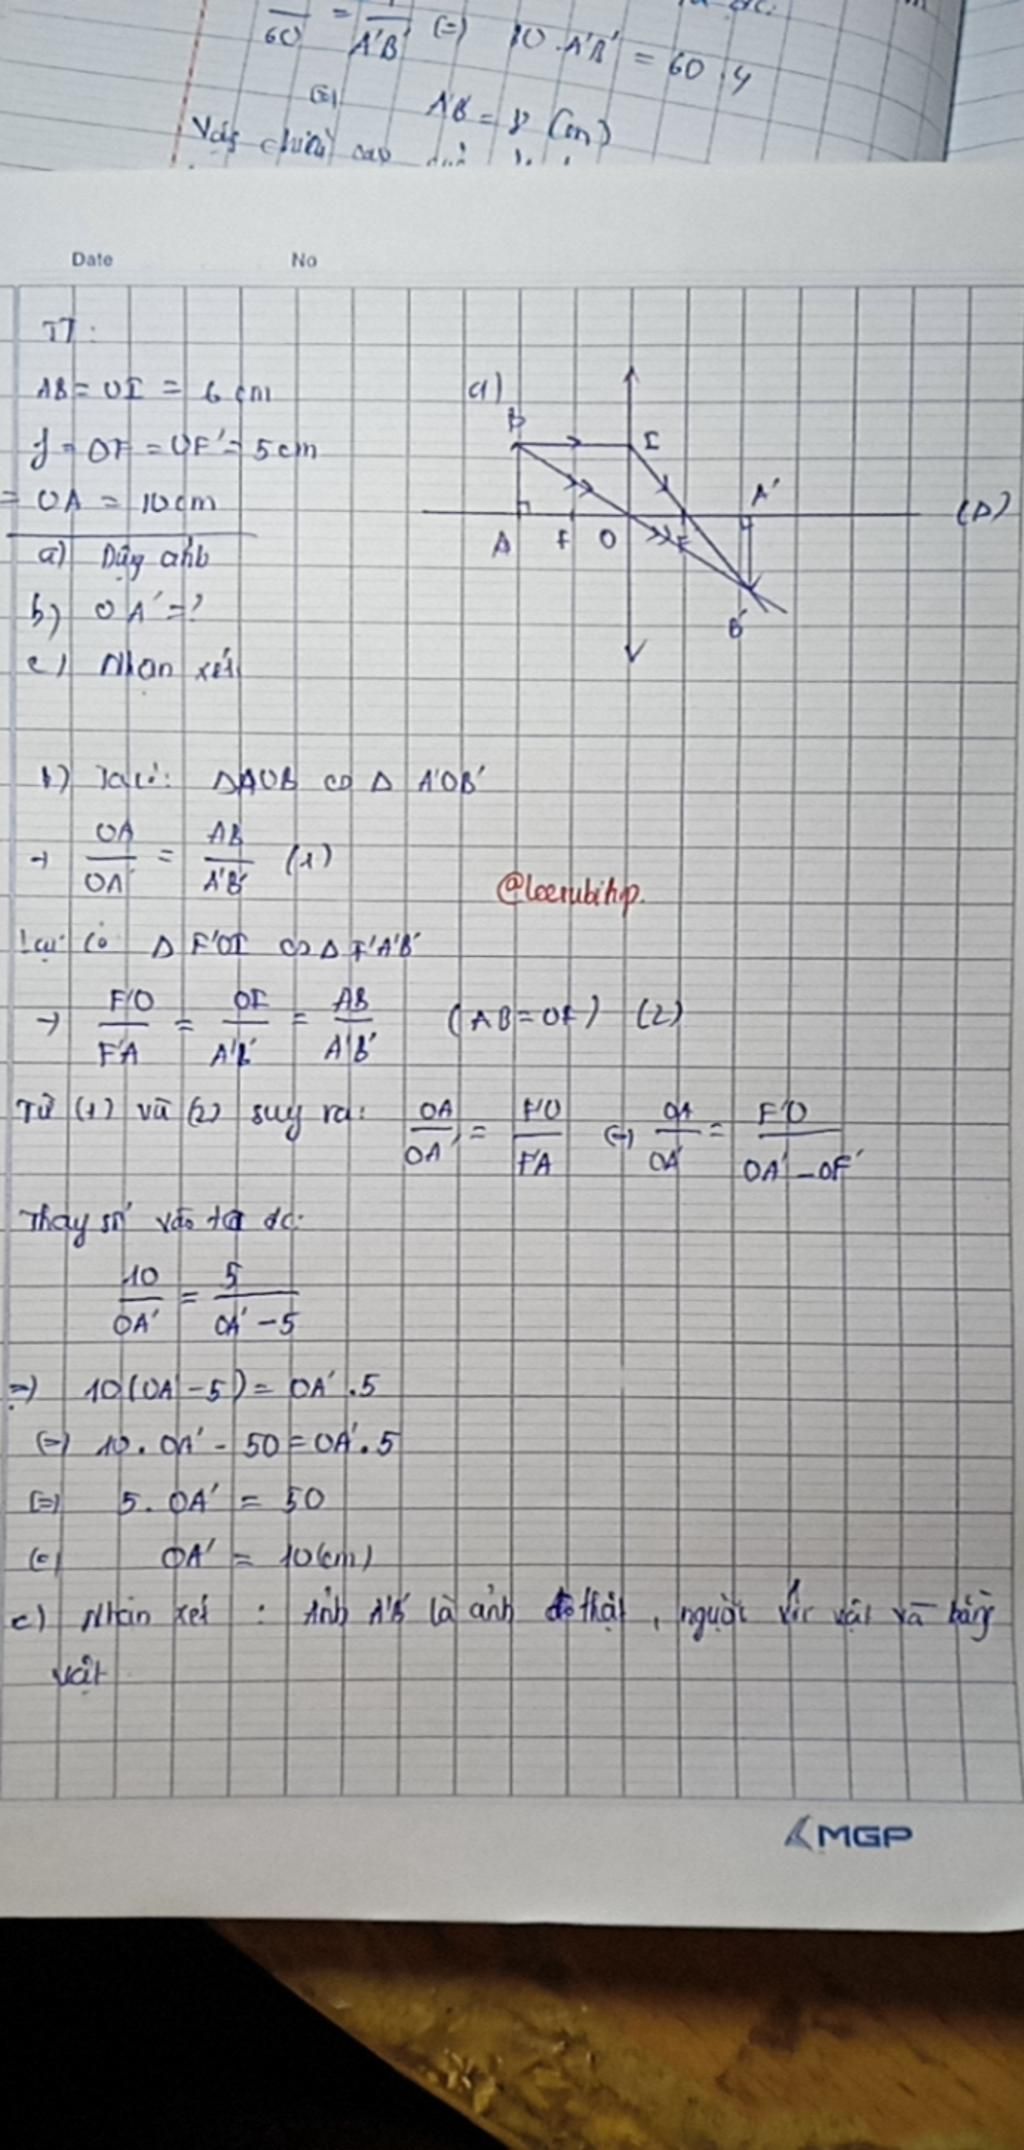 60 = A'B' (=) 10.A'B' = 60.4
(=) A'B' = 8 (cm)
Vậy chiều cao
Date No
TT:
AB = OI = 6 cm
f = OF = OF' = 5cm
= OA = 10cm
a) Dựng ảnh
b) OA' = ?
c) Nhận xét
a)
B I A' (Δ)
A F O F'
B'
b) Ta có: ΔAOB ∽ Δ A'OB'
→ OA/OA' = AB/A'B' (1)
@leerubihp.
Lại có Δ F'OI ∽ Δ F'A'B'
→ F'O/F'A = OI/A'B' = AB/A'B' (AB = OI) (2)
Từ (1) và (2) suy ra: OA/OA' = F'O/F'A (=) OA/OA' = F'O/OA' - OF'
Thay số vào ta đc:
10/OA' = 5/OA' - 5
=) 10(OA' - 5) = OA'.5
(=) 10.OA' - 50 = OA'.5
(=) 5.OA' = 50
(=) OA' = 10(cm)
c) Nhận xét : Ảnh A'B' là ảnh thật, ngược vật và bằng
vật
MGP